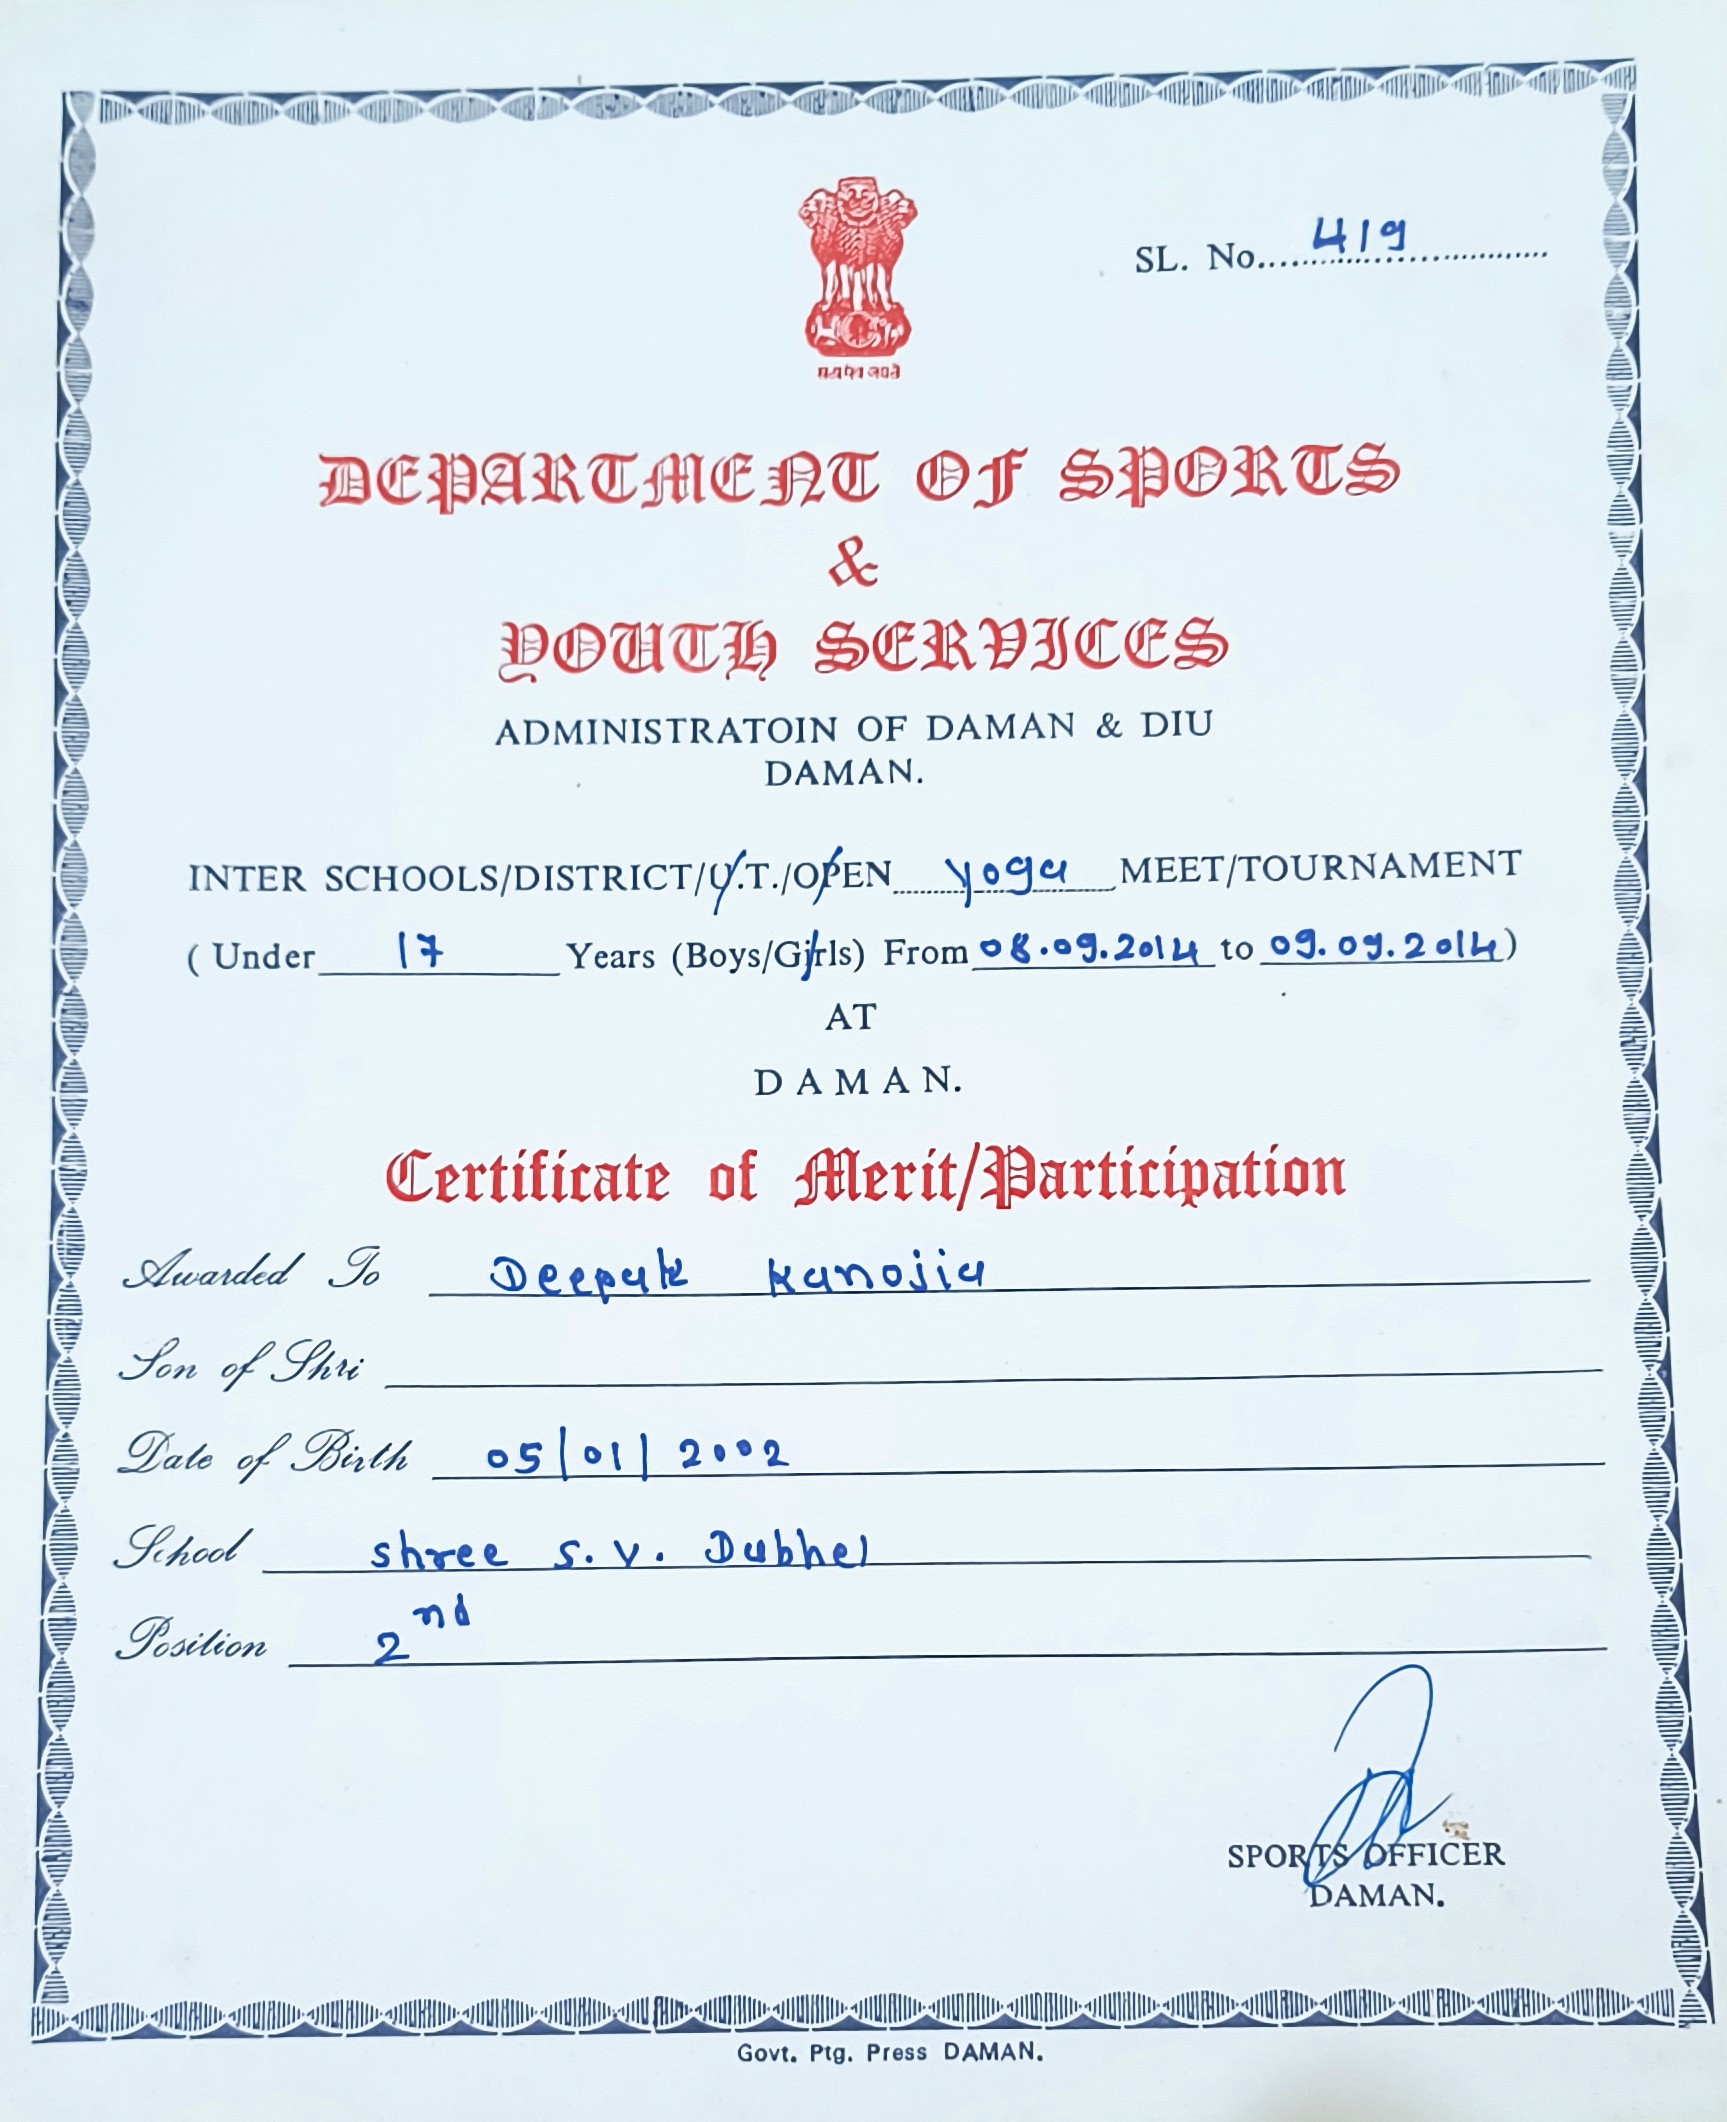 SL. No. 419
सत्यमेव जयते
DEPARTMENT OF SPORTS
&
YOUTH SERVICES
ADMINISTRATOIN OF DAMAN & DIU
DAMAN.
INTER SCHOOLS/DISTRICT/U.T./OPEN Yoga MEET/TOURNAMENT
( Under 17 Years (Boys/Girls) From 08.09.2014 to 09.09.2014)
AT
DAMAN.
Certificate of Merit/Participation
Awarded To Deepak Kanojia
Son of Shri
Date of Birth 05/01/2002
School Shree S.V. Dubhel
Position 2nd
SPORTS OFFICER
DAMAN.
Govt. Ptg. Press DAMAN.